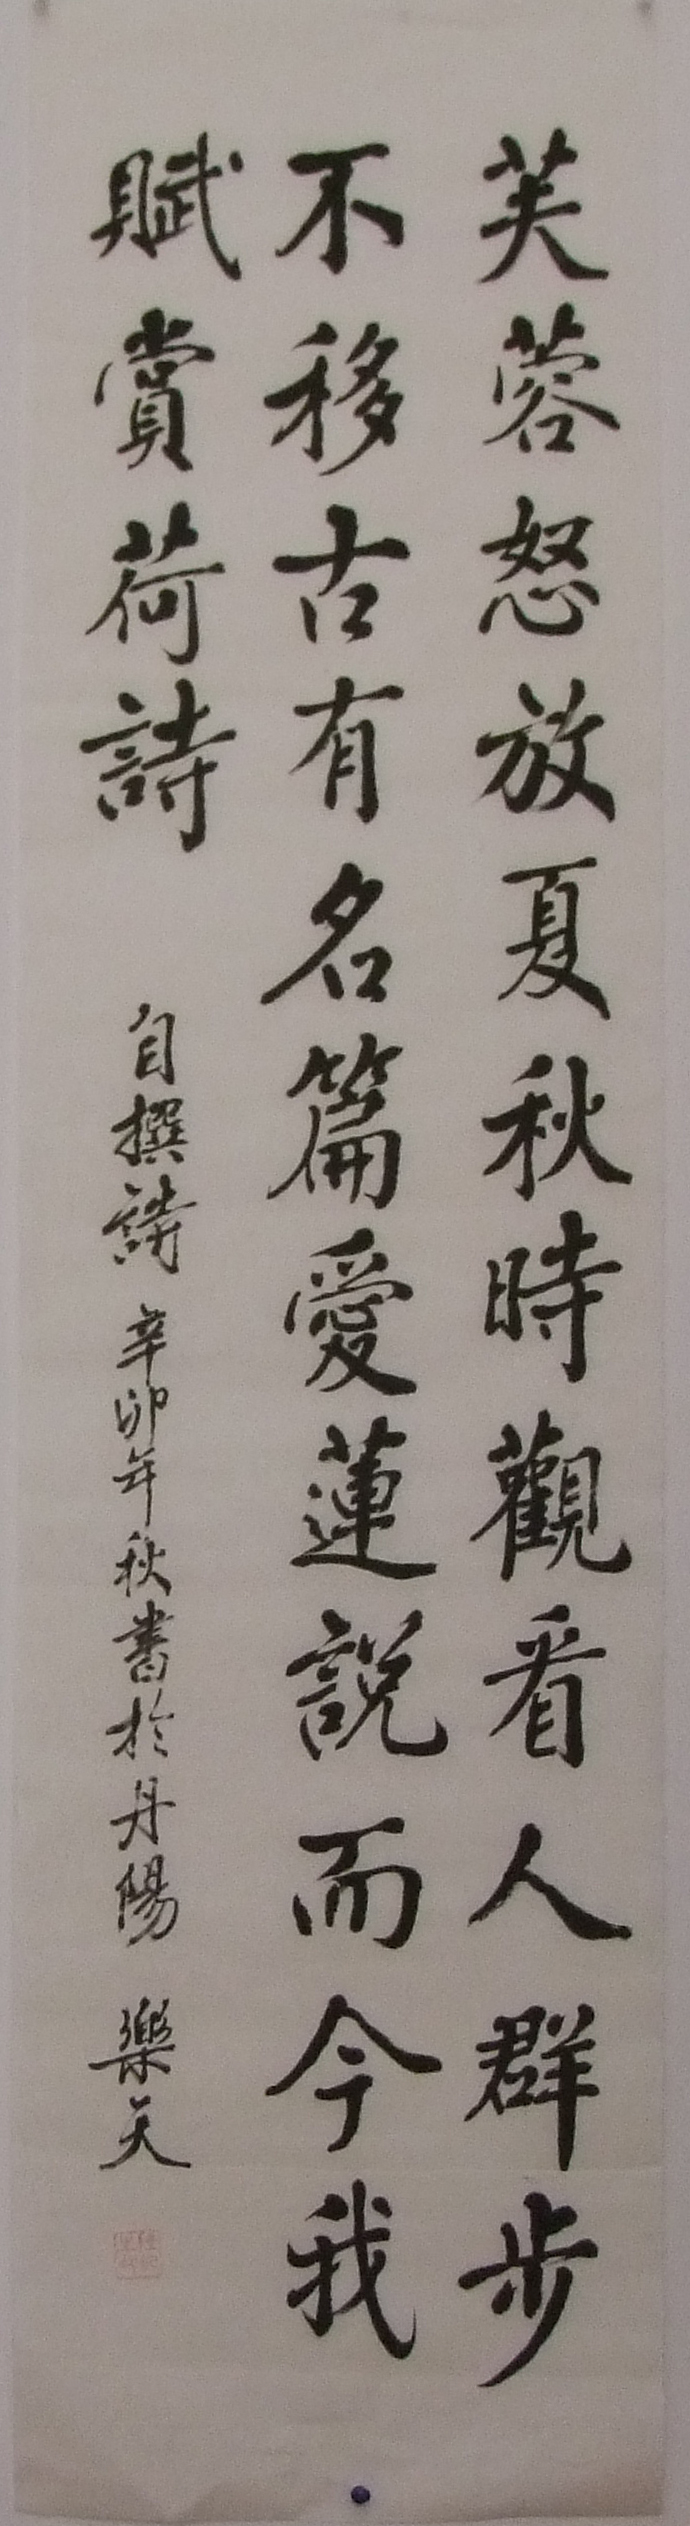 芙蓉怒放夏秋時觀看人群步
不移古有名篇愛蓮說而今我
賦賞荷詩
自撰詩辛卯年秋書於丹陽樂天